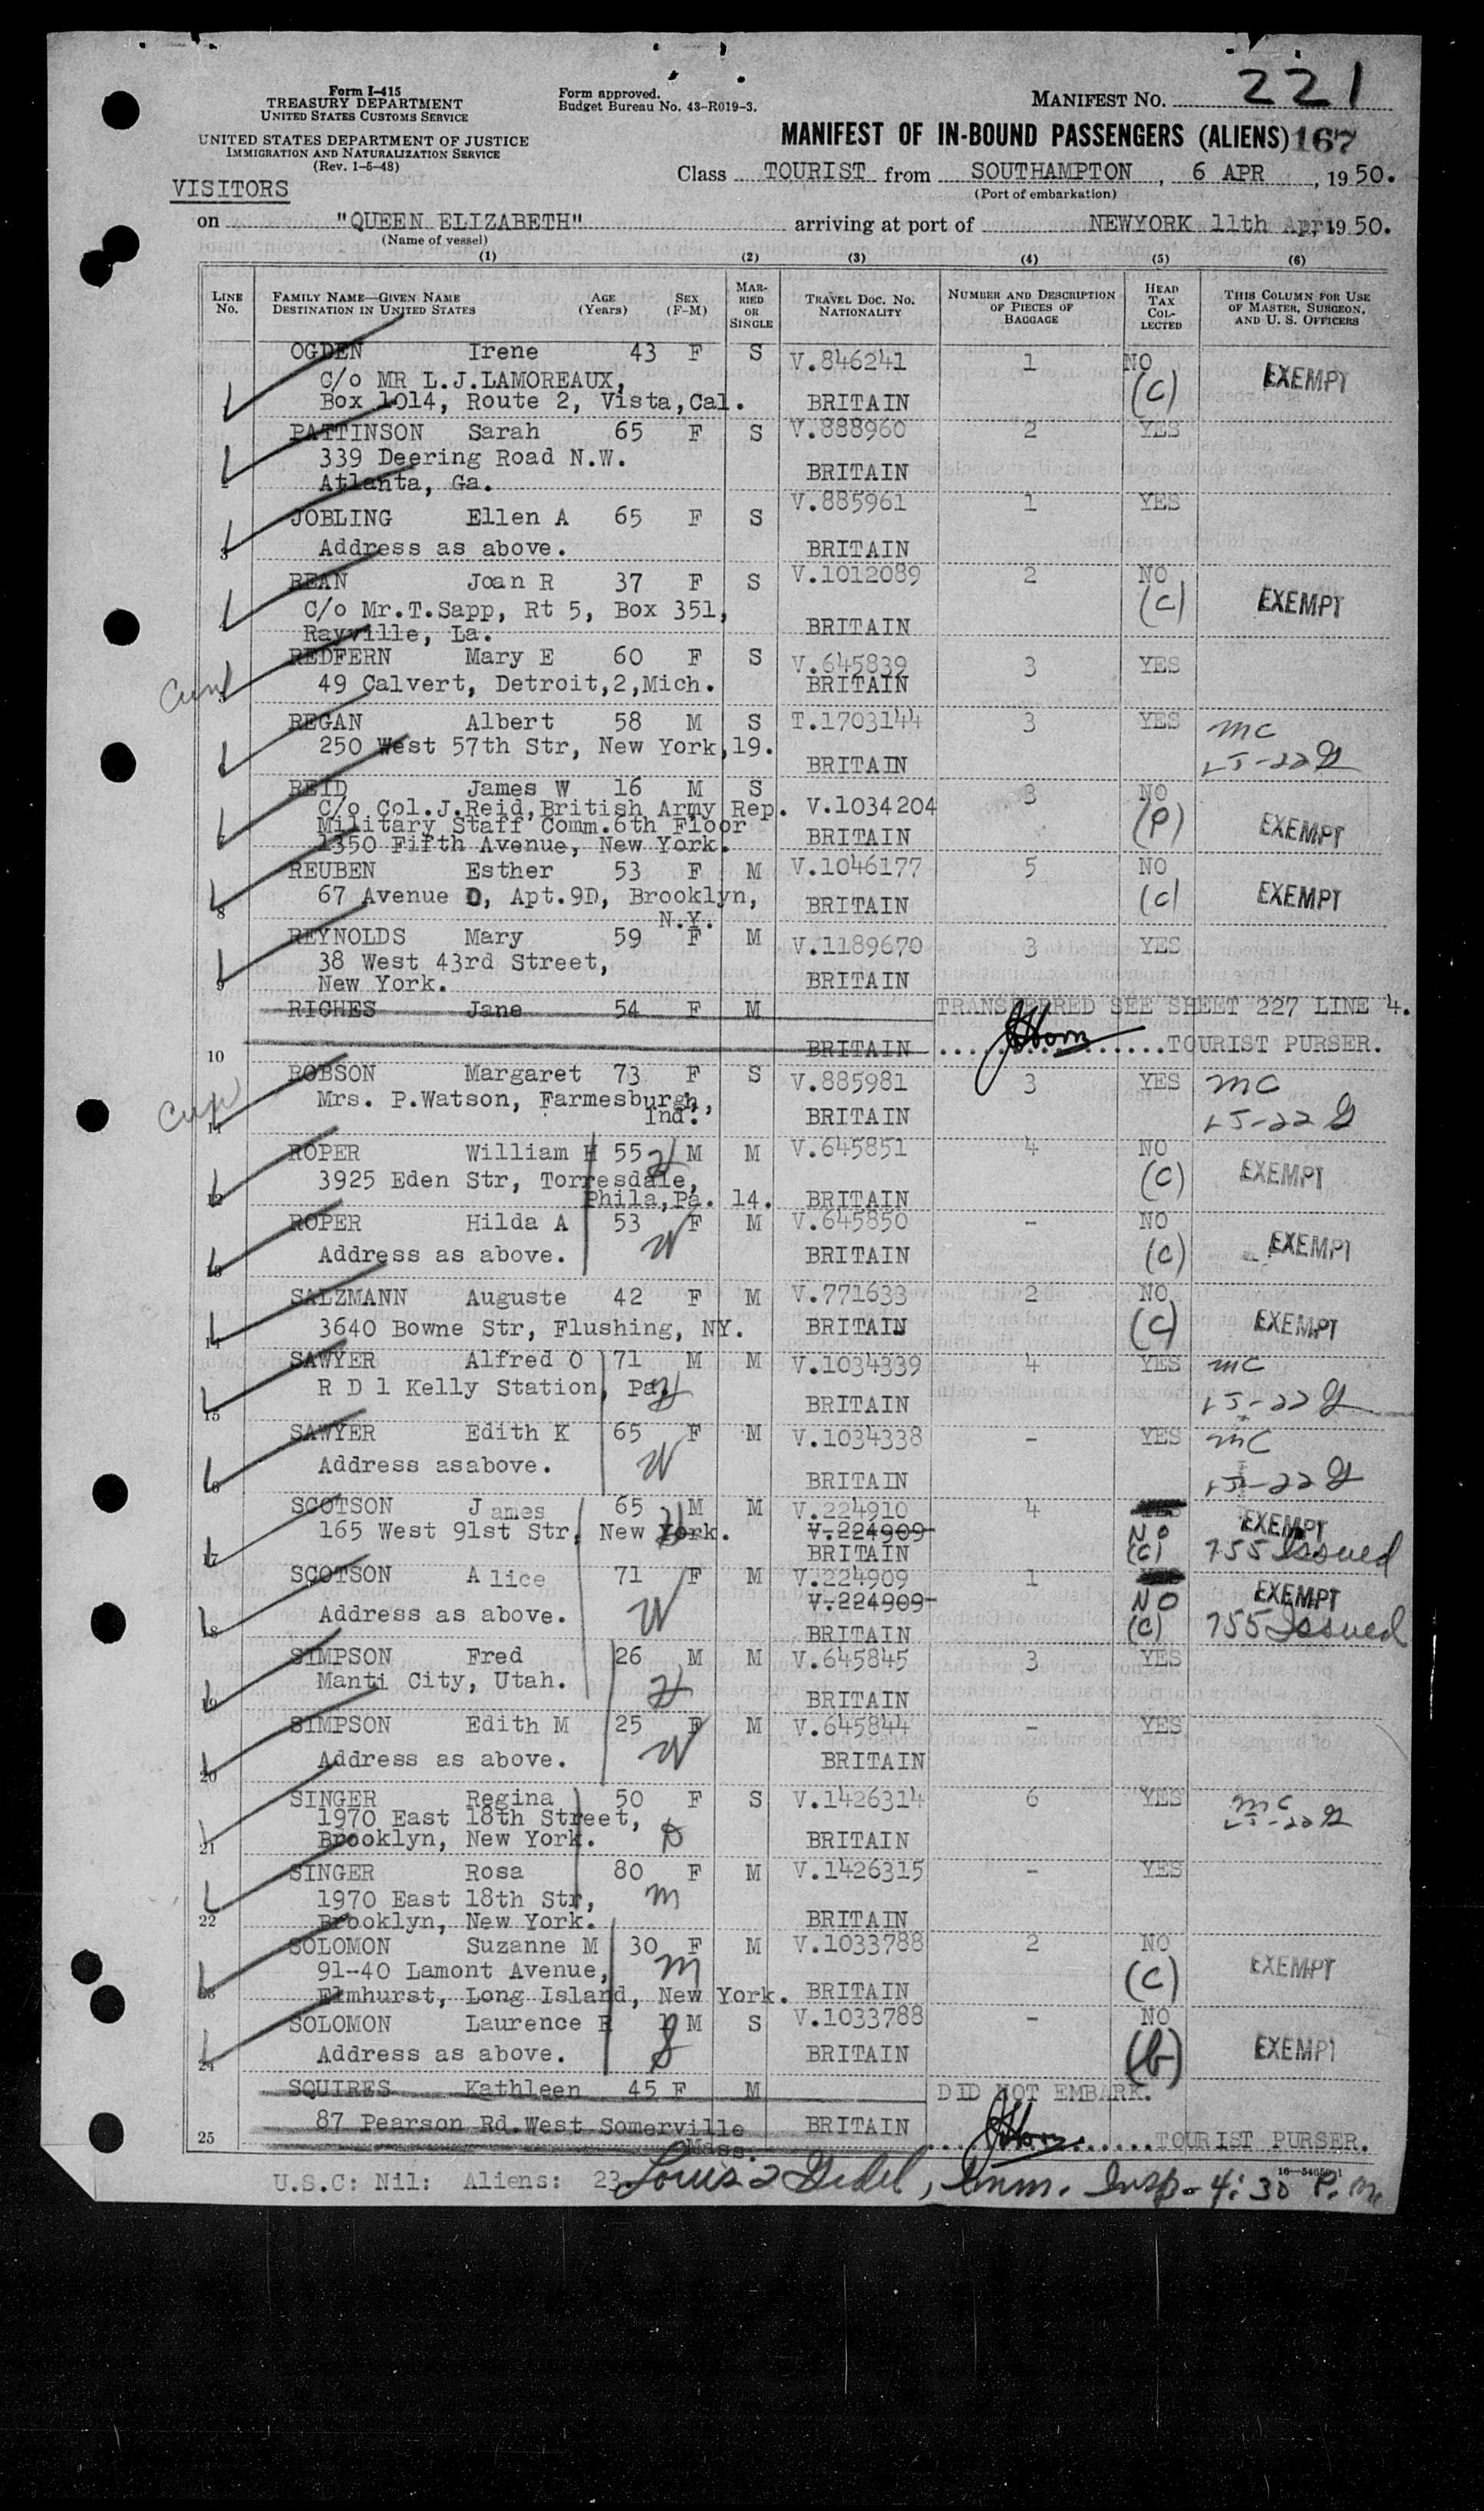 Form I-415
TREASURY DEPARTMENT
UNITED STATES CUSTOMS SERVICE
UNITED STATES DEPARTMENT OF JUSTICE
IMMIGRATION AND NATURALIZATION SERVICE
(Rev. 1-5-48)
Form approved.
Budget Bureau No. 43-R019-3.
MANIFEST NO. 221
MANIFEST OF IN-BOUND PASSENGERS (ALIENS) 167
VISITORS
Class TOURIST from SOUTHAMPTON, 6 APR, 1950.
(Port of embarkation)
on "QUEEN ELIZABETH" arriving at port of NEWYORK 11th Apr, 1950.
(Name of vessel)
(1) (2) (3) (4) (5) (6)
LINE No. FAMILY NAME—GIVEN NAME DESTINATION IN UNITED STATES AGE (Years) SEX (F-M) MARRIED OR SINGLE TRAVEL DOC. NO. NATIONALITY NUMBER AND DESCRIPTION OF PIECES OF BAGGAGE HEAD TAX COLLECTED THIS COLUMN FOR USE OF MASTER, SURGEON, AND U. S. OFFICERS
OGDEN Irene 43 F S V.846241 1 NO EXEMPT
C/o MR L.J.LAMOREAUX, (C)
Box 1014, Route 2, Vista,Cal. BRITAIN
PATTINSON Sarah 65 F S V.888960 2 YES
339 Deering Road N.W. BRITAIN
Atlanta, Ga.
JOBLING Ellen A 65 F S V.885961 1 YES
3 Address as above. BRITAIN
REAN Joan R 37 F S V.1012089 2 NO
C/o Mr.T.Sapp, Rt 5, Box 351, (C) EXEMPT
Rayville, La. BRITAIN
REDFERN Mary E 60 F S V.645839 3 YES
49 Calvert, Detroit,2,Mich. BRITAIN
REGAN Albert 58 M S T.1703144 3 YES mc
250 West 57th Str, New York,19. BRITAIN
REID James W 16 M S 3 NO
C/o Col.J.Reid,British Army Rep. V.1034204 (P) EXEMPT
Military Staff Comm.6th Floor BRITAIN
1350 Fifth Avenue, New York.
REUBEN Esther 53 F M V.1046177 5 NO
8 67 Avenue O, Apt.9D, Brooklyn, BRITAIN (C) EXEMPT
N.Y.
REYNOLDS Mary 59 F M V.1189670 3 YES
38 West 43rd Street,
9 New York. BRITAIN
RICHES Jane 54 F M TRANSFERRED SEE SHEET 227 LINE 4.
10 BRITAIN TOURIST PURSER.
ROBSON Margaret 73 F S V.885981 3 YES mc
11 Mrs. P.Watson, Farmesburgh, Ind. BRITAIN
ROPER William H 55 M M V.645851 4 NO EXEMPT
12 3925 Eden Str, Torresdale, (C)
Phila,Pa. 14. BRITAIN
ROPER Hilda A 53 F M V.645850 - NO EXEMPT
13 Address as above. W BRITAIN (C)
SALZMANN Auguste 42 F M V.771633 2 NO
14 3640 Bowne Str, Flushing, NY. BRITAIN (C) EXEMPT
SAWYER Alfred O 71 M M V.1034339 4 YES mc
15 R D 1 Kelly Station, Pa. H BRITAIN
SAWYER Edith K 65 F M V.1034338 - YES mc
16 Address asabove. W BRITAIN
SCOTSON James 65 M M V.224910 4 EXEMPT
165 West 91st Str, New York. V.224909 NO
17 BRITAIN (C) 755 Issued
SCOTSON Alice 71 F M V.224909 1 EXEMPT
Address as above. W V.224909 NO
18 BRITAIN (C) 755 Issued
SIMPSON Fred 26 M M V.645845 3 YES
19 Manti City, Utah. H BRITAIN
SIMPSON Edith M 25 F M V.645844 - YES
20 Address as above. W BRITAIN
SINGER Regina 50 F S V.1426314 6 YES mc
1970 East 18th Street,
21 Brooklyn, New York. BRITAIN
SINGER Rosa 80 F M V.1426315 - YES
1970 East 18th Str, m
22 Brooklyn, New York. BRITAIN
SOLOMON Suzanne M 30 F M V.1033788 2 NO EXEMPT
91-40 Lamont Avenue, m (C)
Elmhurst, Long Island, New York. BRITAIN
SOLOMON Laurence M S V.1033788 - NO
24 Address as above. BRITAIN (b) EXEMPT
SQUIRES Kathleen 45 F M DID NOT EMBARK.
25 87 Pearson Rd.West Somerville BRITAIN TOURIST PURSER.
Mass.
U.S.C: Nil: Aliens: 23 Louis Imm. Insp. 4:30 P.M.